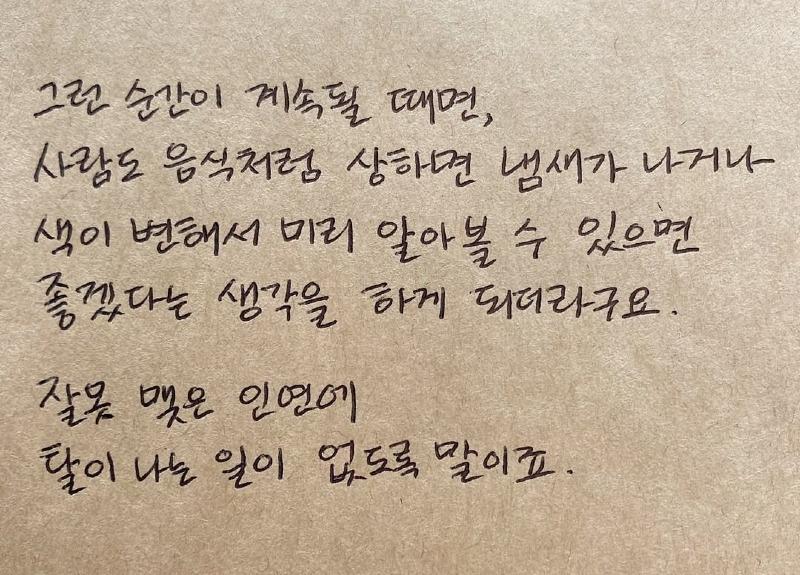 그런 순간이 계속될 때면,
사람도 음식처럼 상하면 냄새가 나거나
색이 변해서 미리 알아볼 수 있으면
좋겠다는 생각을 하게 되더라구요.
잘못 맺은 인연에
탈이 나는 일이 없도록 말이죠.